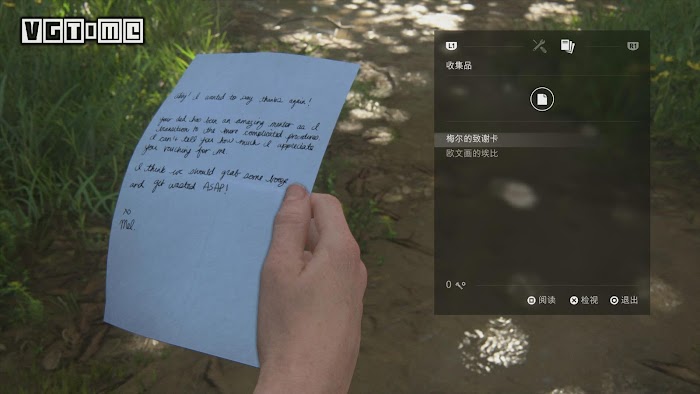 VGTIME
Hey! I wanted to say thanks again!
your dad has been an amazing mentor as I
transition to the more complicated procedures.
I can't tell you how much I appreciate
you vouching for me.
I think we should grab some booze
and get wasted ASAP!
xo
Mel.
L1
R1
收集品
梅尔的致谢卡
欧文画的埃比
0
阅读
检视
退出